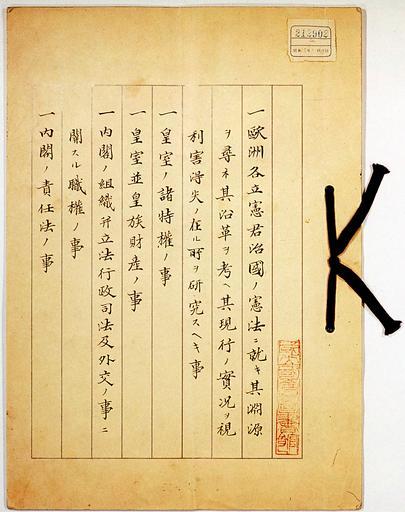 一歐洲各立憲君治國ノ憲法ニ就キ其淵源
ヲ尋ネ其沿革ヲ考ヘ其現行ノ實況ヲ視
利害得失ノ在ル所ヲ研究スヘキ事
一皇室ノ諸特權ノ事
一皇室並皇族財產ノ事
一內閣ノ組織并立法行政司法及外交ノ事ニ
關スル職權ノ事
一內閣ノ責任法ノ事
212902